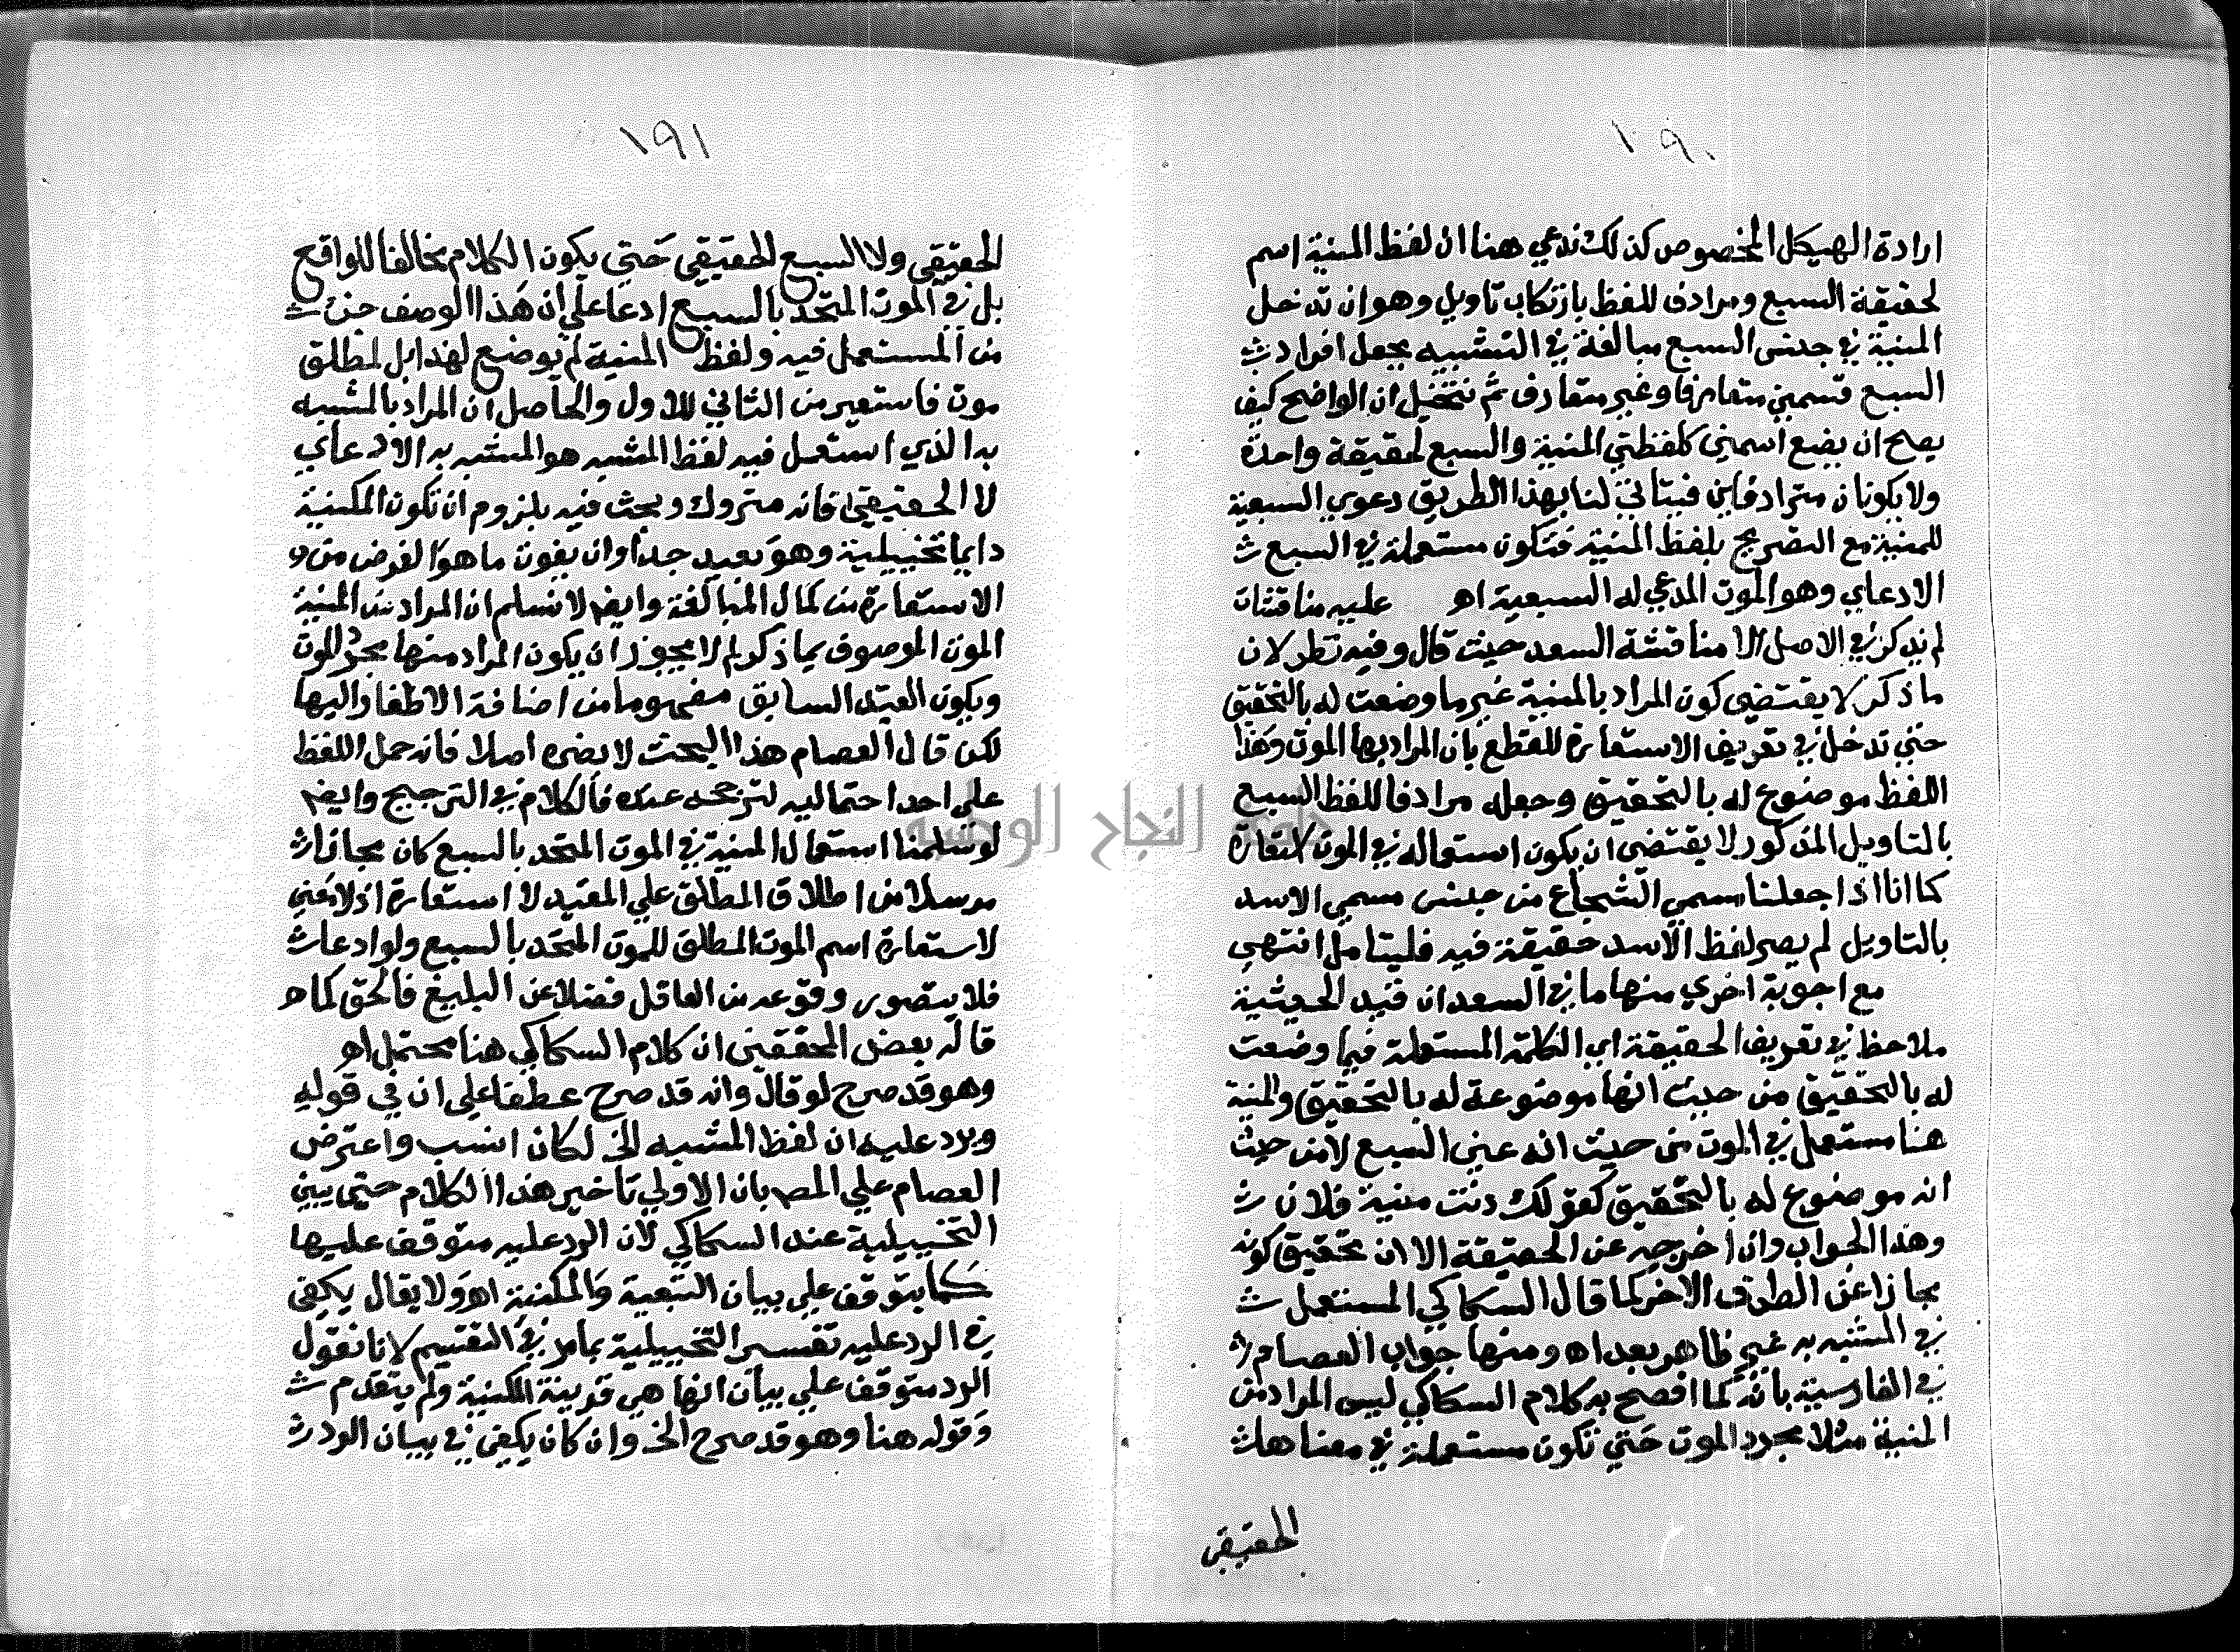 ١٩٠
ارادة الهيكل المخصوص كذلك ندعي هنا ان لفظ المنية اسم
لحقيقة السبع ومرادف للفظ بارتكاب تاويل وهو ان تدخل
المنية في جنس السبع مبالغة في التشبيه بجعل افراد
السبع قسمين متعارفا وغير متعارف ثم نتخيل ان الواضح كيف
يصح ان يضع اسمين كلفظتي المنية والسبع لحقيقة واحدة
ولا يكونان مترادفاين فيتاتي لنا بهذا الطريق دعوي السبعية
للمنية مع التصريح بلفظ المنية فتكون مستعملة في السبع
الادعاي وهو الموت المدعي له السبعية اهـ عليه مناقشات
لم نذكر في الاصل الا مناقشة السعد حيث قال وفيه نظر لان
ما ذكر لا يقتضي كون المراد بالمنية غير ما وضعت له بالتحقيق
حتي تدخل في تعريف الاستعارة للقطع بان المراد بها الموت وهذا
اللفظ موضوع له بالتحقيق وجعله مرادفا للفظ السبع
بالتاويل المذكور لا يقتضي ان يكون استعماله في الموت استعارة
كما انا اذا جعلنا مسمي الشجاع من جنس مسمي الاسد
بالتاويل لم يصر لفظ الاسد حقيقة فيه فليتامل انتهي
مع اجوبة اخري منها ما في السعد ان قيد الحيثية
ملاحظ في تعريف الحقيقة اي الكلمة المستعملة فيما وضعت
له بالتحقيق من حيث انها موضوعة له بالتحقيق والمنية
هنا مستعمل في الموت من حيث انه عين السبع لا من حيث
انه موضوع له بالتحقيق كقولك دنت منية فلان
وهذا الجواب وان اخرجه عن الحقيقة الا ان تحقيق كونه
مجازا عن الطرف الاخر كما قال السكاكي المستعمل
في المشبه به غير ظاهر بعد اهـ ومنها جواب العصام
في الفارسية بانه كما افصح به كلام السكاكي ليس المراد من
المنية مثلا مجرد الموت حتي تكون مستعملة في معناها
الحقيقي
١٩١
الحقيقي ولا السبع الحقيقي حتي يكون الكلام مخالفا للواقع
بل في الموت المتحد بالسبع ادعا علي ان هذا الوصف جزء
من المستعمل فيه ولفظ المنية لم يوضع لهذا بل لمطلق
موت فاستعير من الثاني للاول والحاصل ان المراد بالمشبه
به الذي استعمل فيه لفظ المشبه هو المشبه به الادعاي
لا الحقيقي فانه متروك وبحث فيه بلزوم ان تكون المكنية
دايما تخييلية وهو بعيد جدا وان يفوت ما هو الغرض من
الاستعارة من كمال المبالغة وايضا لا نسلم ان المراد من المنية
الموت الموصوف بما ذكر لم لا يجوز ان يكون المراد منها مجرد الموت
ويكون القيد السابق مفهوما من اضافة الاظفار اليها
لكن قال العصام هذا البحث لا يضره اصلا فانه حمل اللفظ
علي احد احتماليه لترجحه عنده فالكلام في الترجيح وايضا
لو سلمنا استعمال المنية في الموت المتحد بالسبع كان مجازا
مرسلا من اطلاق المطلق علي المقيد لا استعارة اذ لا معني
لاستعارة اسم الموت المطلق للموت المتحد بالسبع ولو ادعا
فلا يتصور وقوعه من العاقل فضلا عن البليغ فالحق كما
قاله بعض المحققين ان كلام السكاكي هنا محتمل اهـ
وهو قد صرح لو قال وانه قد صرح عطفا علي ان في قوله
ويرد عليه ان لفظ المشبه الخ لكان انسب واعترض
العصام علي المصـ بان الاولي تاخير هذا الكلام حتي يبين
التخييلية عند السكاكي لان الرد عليه متوقف عليها
كما يتوقف علي بيان التبعية والمكنية اهـ ولا يقال يكفي
في الرد عليه تفسير التخييلية بما مر في التقسيم لانا نقول
الرد متوقف علي بيان انها هي قرينة المكنية ولم يتقدم
وقوله هنا وهو قد صرح الخ وان كان يكفي في بيان الرد